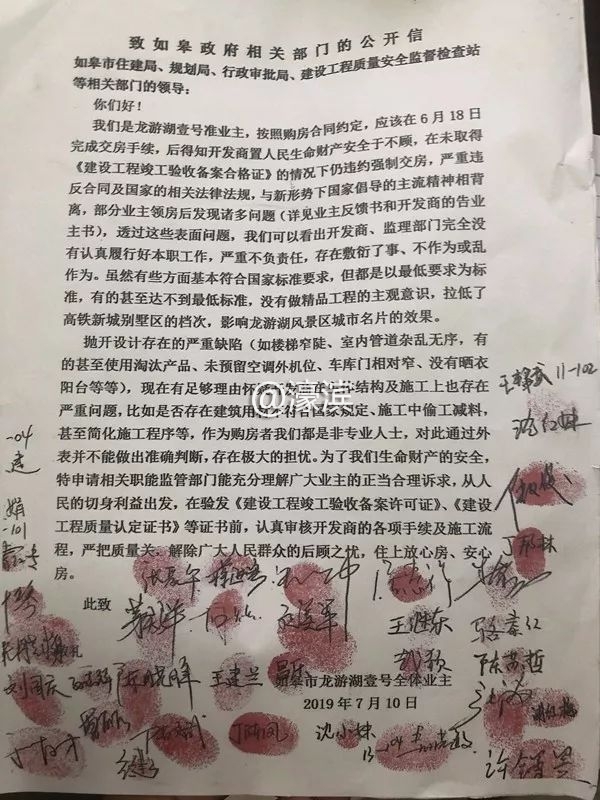 致如皋政府相关部门的公开信
如皋市住建局、规划局、行政审批局、建设工程质量安全监督检查站
等相关部门的领导：
你们好！
我们是龙游湖壹号准业主，按照购房合同约定，应该在6月18日
完成交房手续，后得知开发商置人民生命财产安全于不顾，在未取得
《建设工程竣工验收备案合格证》的情况下仍违约强制交房，严重违
反合同及国家的相关法律法规，与新形势下国家倡导的主流精神相背
离，部分业主领房后发现诸多问题（详见业主反馈书和开发商的告业
主书），透过这些表面问题，我们可以看出开发商、监理部门完全没
有认真履行好本职工作，严重不负责任，存在敷衍了事、不作为或乱
作为。虽然有些方面基本符合国家标准要求，但都是以最低要求为标
准，有的甚至达不到最低标准，没有做精品工程的主观意识，拉低了
高铁新城别墅区的档次，影响龙游湖风景区城市名片的效果。
抛开设计存在的严重缺陷（如楼梯窄陡、室内管道杂乱无序，有
的甚至使用淘汰产品、未预留空调外机位、车库门相对窄、没有晒衣
阳台等等），现在有足够理由怀 发 在 结构及施工上也存在
严重问题，比如是否存在建筑用 规定、施工中偷工减料，
甚至简化施工程序等，作为购房者我们都是非专业人士，对此通过外
表并不能做出准确判断，存在极大的担忧。为了我们生命财产的安全，
特申请相关职能监管部门能充分理解广大业主的正当合理诉求，从人
民的切身利益出发，在验发《建设工程竣工验收备案许可证》、《建设
工程质量认定证书》等证书前，认真审核开发商的各项手续及施工流
程，严把质量关，解除广大人民群众的后顾之忧，住上放心房、安心
房。
此致
@濠滨
11-102
丁邦林
王继东
骆素红
陈苏哲
刘国庆
陈晓峰
王建兰
如皋市龙游湖壹号全体业主
2019年7月10日
沈小妹
-04
-101